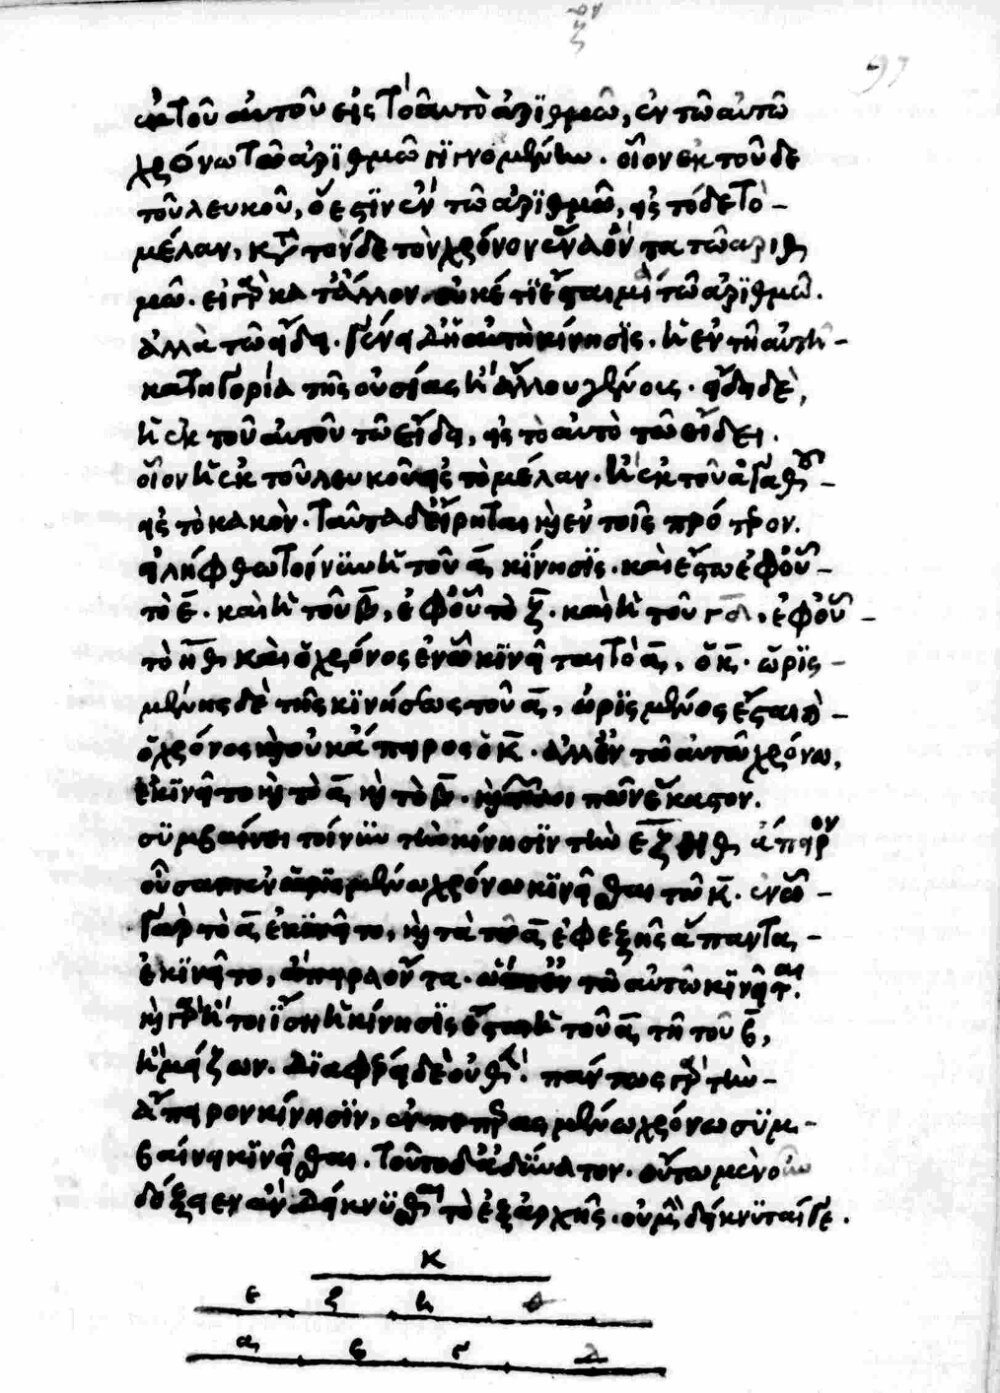 ἐκ τοῦ αὐτοῦ εἰς τὸ αὐτὸ ἀριθμῶ, ἐν τῶ αὐτῶ
χρόνω τῶ ἀριθμῶ γινομένην. οἷον ἐκ τοῦδε
τοῦ λευκοῦ, ὅ ἐστιν ἓν τῶ ἀριθμῶ, εἰς τόδε τὸ
μέλαν, κατὰ τόνδε τὸν χρόνον ἕνα ὄντα τῶ αριθ
μῶ. εἰ γὰρ κατ' ἄλλον, οὐκέτι ἔσται μία τῶ ἀριθμῶ.
ἀλλὰ τῶ εἴδει. γένει δὲ ἡ αὐτὴ κίνησις. ἡ ἐν τῆ αὐτῆ
κατηγορία τῆς οὐσίας ἢ ἄλλου γένους. εἴδει δὲ,
ἡ ἐκ τοῦ αὐτοῦ τῶ εἴδει, εἰς τὸ αὐτὸ τῶ εἴδει.
οἷον ἡ ἐκ τοῦ λευκοῦ εἰς τὸ μέλαν. ἢ ἐκ τοῦ ἀγαθοῦ
εἰς τὸ κακόν. ταῦτα δ' εἴρηται καὶ ἐν τοῖς πρότερον.
εἰλήφθω τοίνυν ἡ τοῦ α κίνησις. καὶ ἔστω ἐφ' οὗ
τὸ ε. καὶ ἡ τοῦ β, ἐφ' οὗ τὸ ζ. καὶ ἡ τοῦ γδ, ἐφ' οὗ
τὸ ηθ καὶ ὁ χρόνος ἐν ὧ κινεῖται τὸ α, ὁ κ. ὡρισ
μένης δὲ τῆς κινήσεως τοῦ α, ὡρισμένος ἔσται καὶ
ὁ χρόνος καὶ οὐκ ἄπειρος ὁ κ. ἀλλ' ἐν τῶ αὐτῶ χρόνω,
ἐκινεῖτο καὶ τὸ α καὶ τὸ β. καὶ τῶν λοιπῶν ἕκαστον.
συμβαίνει τοίνυν τὴν κίνησιν τὴν εζηθ ἄπειρον
οὖσαν ἐν ὡρισμένω χρόνω κινεῖσθαι τῶ κ. ἐν ὧ
γὰρ τὸ α ἐκινεῖτο, καὶ τὰ τῶ α ἐφεξῆς ἅπαντα,
ἐκινεῖτο, ἄπειρα ὄντα. ὥστ' ἐν τῶ αὐτῶ κινεῖται.
καὶ γὰρ ἤτοι ἴση ἡ κίνησις ἔσται ἡ τοῦ α τῆ τοῦ β,
ἢ μείζων. διαφέρει δὲ οὐθέν. πάντως γὰρ τὴν
ἄπειρον κίνησιν, ἐν πεπερασμένω χρόνω συμ
βαίνει κινεῖσθαι. τοῦτο δ' ἀδύνατον. οὕτω μὲν οὖν
δόξειεν ἂν δείκνυσθαι τὸ ἐξἀρχῆς. οὐ μὴν δείκνυταί γε.
κ
ε ζ η θ
α β γ δ